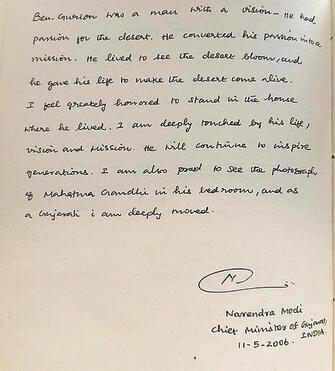 Ben-Gurion was a man with a vision - He had
passion for the desert. He converted his passion into a
mission. He lived to see the desert bloom, and
he gave his life to make the desert come alive.
I feel greately honored to stand in the house
where he lived. I am deeply touched by his life,
vision and mission. He will continue to inspire
generations. I am also proud to see the photograph
of Mahatma Gandhi in his bedroom, and as
a Gujarati i am deeply moved.
Narendra Modi
Chief Minister of Gujarat,
INDIA.
11-5-2006.